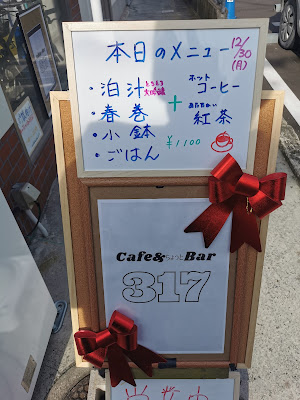 本日のメニュー 12/30(月)
・泊汁
・春巻
・小鉢
・ごはん
+
ホット
コーヒー
あたたかい
紅茶
¥1100
Cafe&ちょっとBar
317
営業中